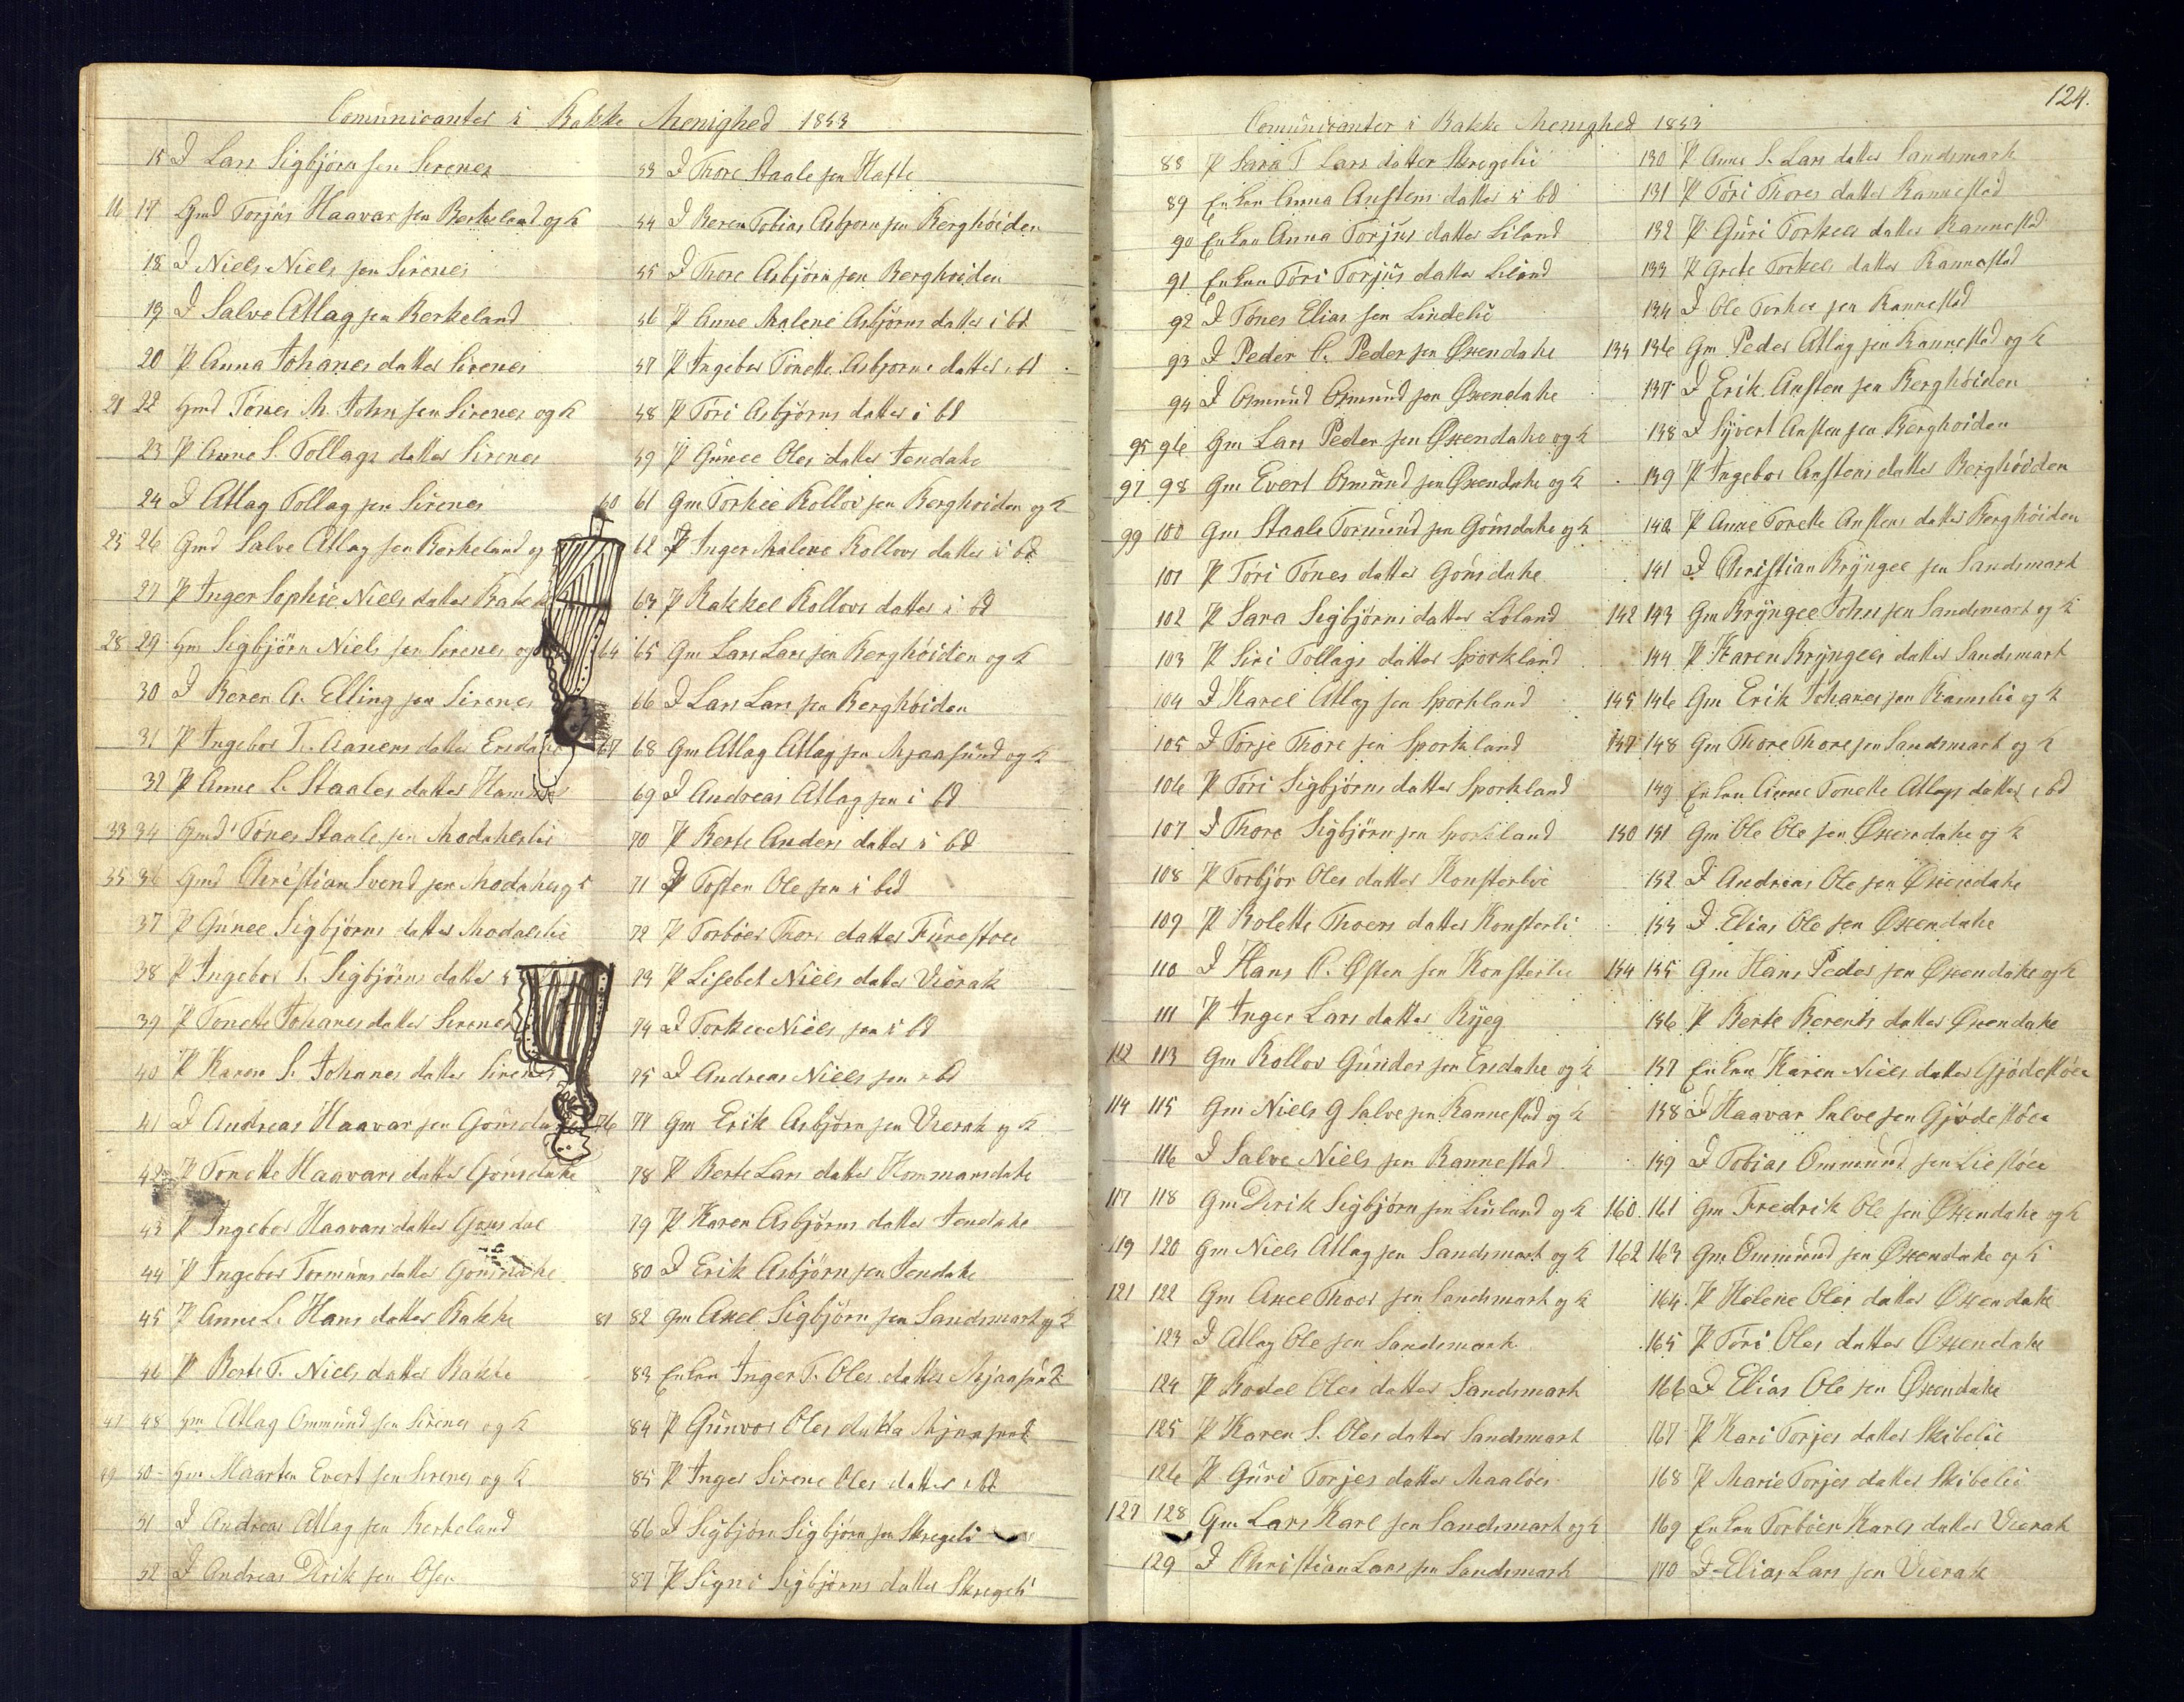 Comunicanter i Bakke Menighed 1853
15 D Lars Sigbjörn sen Sirenes
16 17 Gmd Torjus Haavar sen Berkeland og K
18 D Niels Niels sen Sirenes
19 D Salve Atlag sen Berkeland
20 P Anna Johanes datter Sirenes
21 22 Gmd Tönes M. John sen Sirenes og K
23 P Anne S. Tollags datter Sirenes
24 D Atlag Tollag sen Sirenes
25 26 Gmd Salve Atlag sen Berkeland og
27 P Inger Sophie Niels datter Bakke
28 29 Gm Sigbjörn Niels sen Sirenes og
30 D Beren A. Elling sen Sirenes
31 P Ingebor T. Aanens datter
32 P Anne L. Staales datter
33 34 Gmd Tönes Staale sen
35 36 Gmd Christian Svend sen
37 P Gunel Sigbjörns datter Modalslie
38 P Ingebor T. Sigbjörns datter i
39 P Tonette Johanes datter Sirenes
40 P Karen S. Johanes datter Sirenes
41 D Andreas Haavar sen
42 P Tonette Haavars datter Gönsdahe
43 P Ingebor Haavars datter
44 P Ingebor Tormuns datter
45 P Anne L. Hans datter Bakke
46 P Berte T. Niels datter Bakke
47 48 Gm Atlag Ommund sen Sirenes og K
49 50 Gm Maarten Evert sen Sirenes og K
51 D Andreas Atlag sen Berkeland
52 D Andreas Dirik sen Osen
53 D Thore Staale sen Hafte
54 D Beren Tobias Asbjorn sen Berghöiden
55 D Thore Asbjörn sen Berghoiden
56 P Anne Malene Asbjörns datter i bd
57 P Ingebor Tonette Asbjorns datter i bd
58 P Töri Asbjörns datter i bd
59 P Gunel Oles datter Jendahe
60 61 Gm Torkel Rollov sen Berghoiden og K
62 P Inger Malene Rollovs datter i bd
63 P Rakkel Rollovs datter i bd
64 65 Gm Lars Lars sen Berghöiden og K
66 D Lars Lars sen Berghöiden
67 68 Gm Atlag Atlag sen Mjaasund og K
69 D Andreas Atlag sen i bd
70 P Berte Anders datter i bd
71 D Tosten Ole sen i bd
72 P Torböer Thors datter Furestöel
73 P Lisebet Niels datter Vierak
74 D Torkel Niels sen i bd
75 D Andreas Niels sen i bd
76 77 Gm Erik Asbjörn sen Vierak og K
78 P Berte Lars datter Hommansdahe
79 P Karen Asbjörns datter Jendahe
80 D Erik Asbjörn sen Jendahe
81 82 Gm Axel Sigbjörn sen Sandsmark og K
83 Enken Inger T. Oles datter Mjaasund
84 P Gunvor Oles datter Mjaasund
85 P Inger Sirene Oles datter i bd
86 D Sigbjörn Sigbjörn sen Skregeli
87 P Signi Sigbjörns datter Skregeli
124.
Comunicanter i Bakke Menighed 1853
88 P Sara T Lars datter Skregelie
89 Enken Anna Anstens datter i bd
90 Enken Anna Torjus datter Liland
91 Enken Töri Torjus datter Liland
92 D Tönes Elias sen Lindelie
93 D Peder C. Peder sen Øxendahe
94 D Osmund Osmund sen Øxendahe
95 96 Gm Lars Peder sen Øxendahe og K
97 98 Gm Evert Osmund sen Øxendahe og K
99 100 Gm Staale Tormund sen Gönsdahe og K
101 P Töri Tönes datter Gönsdahe
102 P Sara Sigbjörns datter Löland
103 P Siri Tollags datter Sporkland
104 D Karel Atlag sen Sporkland
105 D Törje Thore sen Sporkland
106 P Töri Sigbjörns datter Sporkland
107 D Thore Sigbjörn sen Sporkland
108 P Torbjör Oles datter Konsterlie
109 P Bolette Thoers datter Konsterli
110 D Hans C. Østen sen Konsterlie
111 P Inger Lars datter Ryeg
112 113 Gm Rollov Gunder sen Ersdahe og K
114 115 Gm Niels G Salve sen Rannestad og K
116 D Salve Niels sen Rannestad
117 118 Gm Dirik Sigbjörn sen Liiland og K
119 120 Gm Niels Atlag sen Sandsmark og K
121 122 Gm Axel Thoer sen Sandsmark og K
123 D Atlag Ole sen Sandsmark
124 P Bodel Oles datter Sandsmark
125 P Karen S. Oles datter Sandsmark
126 P Guri Torjes datter Maalöer
127 128 Gm Lars Karl sen Sandsmark og K
129 D Christian Lars sen Sandsmark
130 P Anne S. Lars datter Sandsmark
131 P Töri Thores datter Rannestad
132 P Guri Torkels datter Rannestad
133 P Grete Torkels datter Rannestad
134 D Ole Torkel sen Rannestad
135 136 Gm Peder Atlag sen Rannestad og K
137 D Erik Ansten sen Berghöiden
138 D Syvert Ansten sen Berghoiden
139 P Ingebor Anstens datter Berghöiden
140 P Anne Tonette Anstens datter Berghöiden
141 D Christian Bryngel sen Sandsmark
142 143 Gm Bryngel Johns sen Sandsmark og K
144 P Karen Bryngels datter Sandsmark
145 146 Gm Erik Johanes sen Ramslie og K
147 148 Gm Thore Thore sen Sandsmark og K
149 Enken Anne Tonette Atlags datter i bd
150 151 Gm Ole Ole sen Øxendahe og K
152 D Andreas Ole sen Øxendahe
153 D Elias Ole sen Øxendahe
154 155 Gm Hans Peder sen Øxendahe og K
156 P Berte Berents datter Øxendahe
157 Enken Karen Niels datter Gjödestöel
158 D Haavar Salve sen Gjödestöel
159 D Tobias Ommund sen Liestöel
160 161 Gm Fredrik Ole sen Øxendahe og K
162 163 Gm Ommund sen Øxendahe og K
164 P Helene Oles datter Øxendahe
165 P Töri Oles datter Øxendahe
166 D Elias Ole sen Øxendahe
167 P Kari Torjes datter Skibelie
168 P Marie Torjes datter Skibelie
169 Enken Torböer Karls datter Vierak
170 D Elias Lars sen Vierak